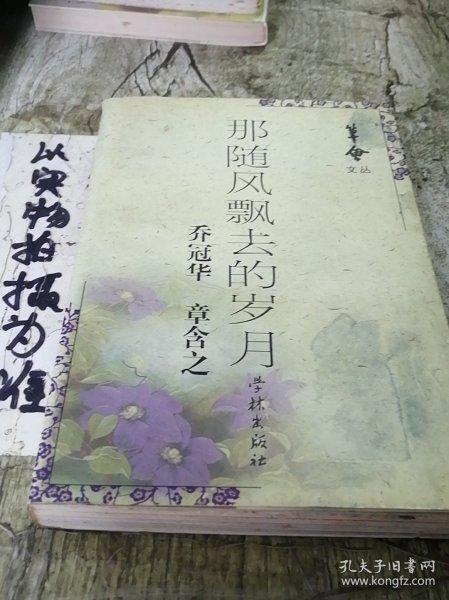 以实物拍摄为准
那随风飘去的岁月
乔冠华 章含之
文丛
学林出版社
孔夫子旧书网
www.kongfz.com